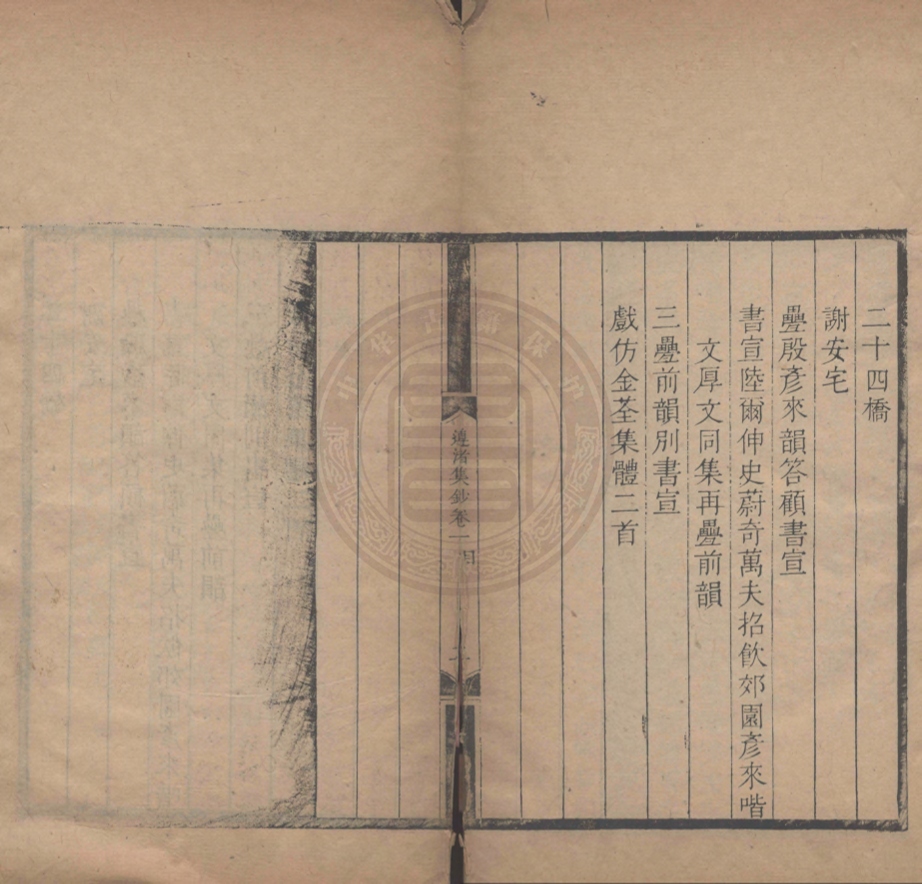 二十四橋
謝安宅
疊殷彥來韻答顧書宣
書宣陸爾伸史蔚竒萬夫招飲郊園彥來喈
文厚文同集再疊前韻
三疊前韻別書宣
戲仿金荃集體二首
渚集鈔卷一目